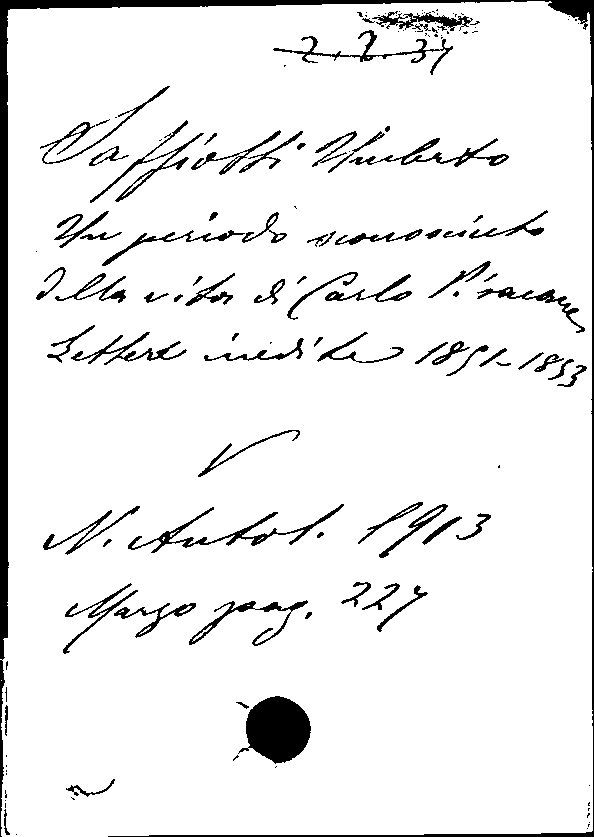 2. 2. 34
Saffiotti Umberto
Un periodo sconosciuto
della vita di Carlo Pisacane
Lettere inedite 1851-1853
V
N. Antol. 1913
Marzo pag. 227